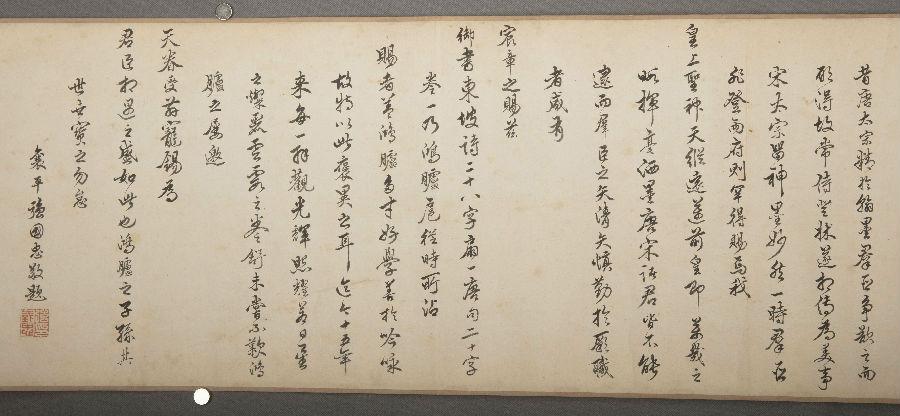 昔唐太宗精於翰墨群臣爭歡之而
欲得故常侍登牀遂相傳為美事
宋太宗留神墨妙然一時群臣
非登兩府則罕得賜焉我
皇上聖神天縱遠邁前皇即萬幾之
暇揮毫洒墨唐宋諸君皆不能
逮而群臣之矢清矢慎勤於厥職
者咸有
宸章之賜茲
御書東坡詩二十八字扇一唐句二十字
卷一乃鴻臚扈從時所沾
賜者蓋鴻臚多才好學善於吟咏
故特以此褒異之耳迄今十五年
來每一拜觀光輝照耀若日星
之燦雲霞之卷舒未嘗不歎鴻
臚之屢邀
天眷受茲寵錫為
君臣相遇之盛如此也鴻臚之子孫其
世世寶之勿忘
襄平張國忠敬題